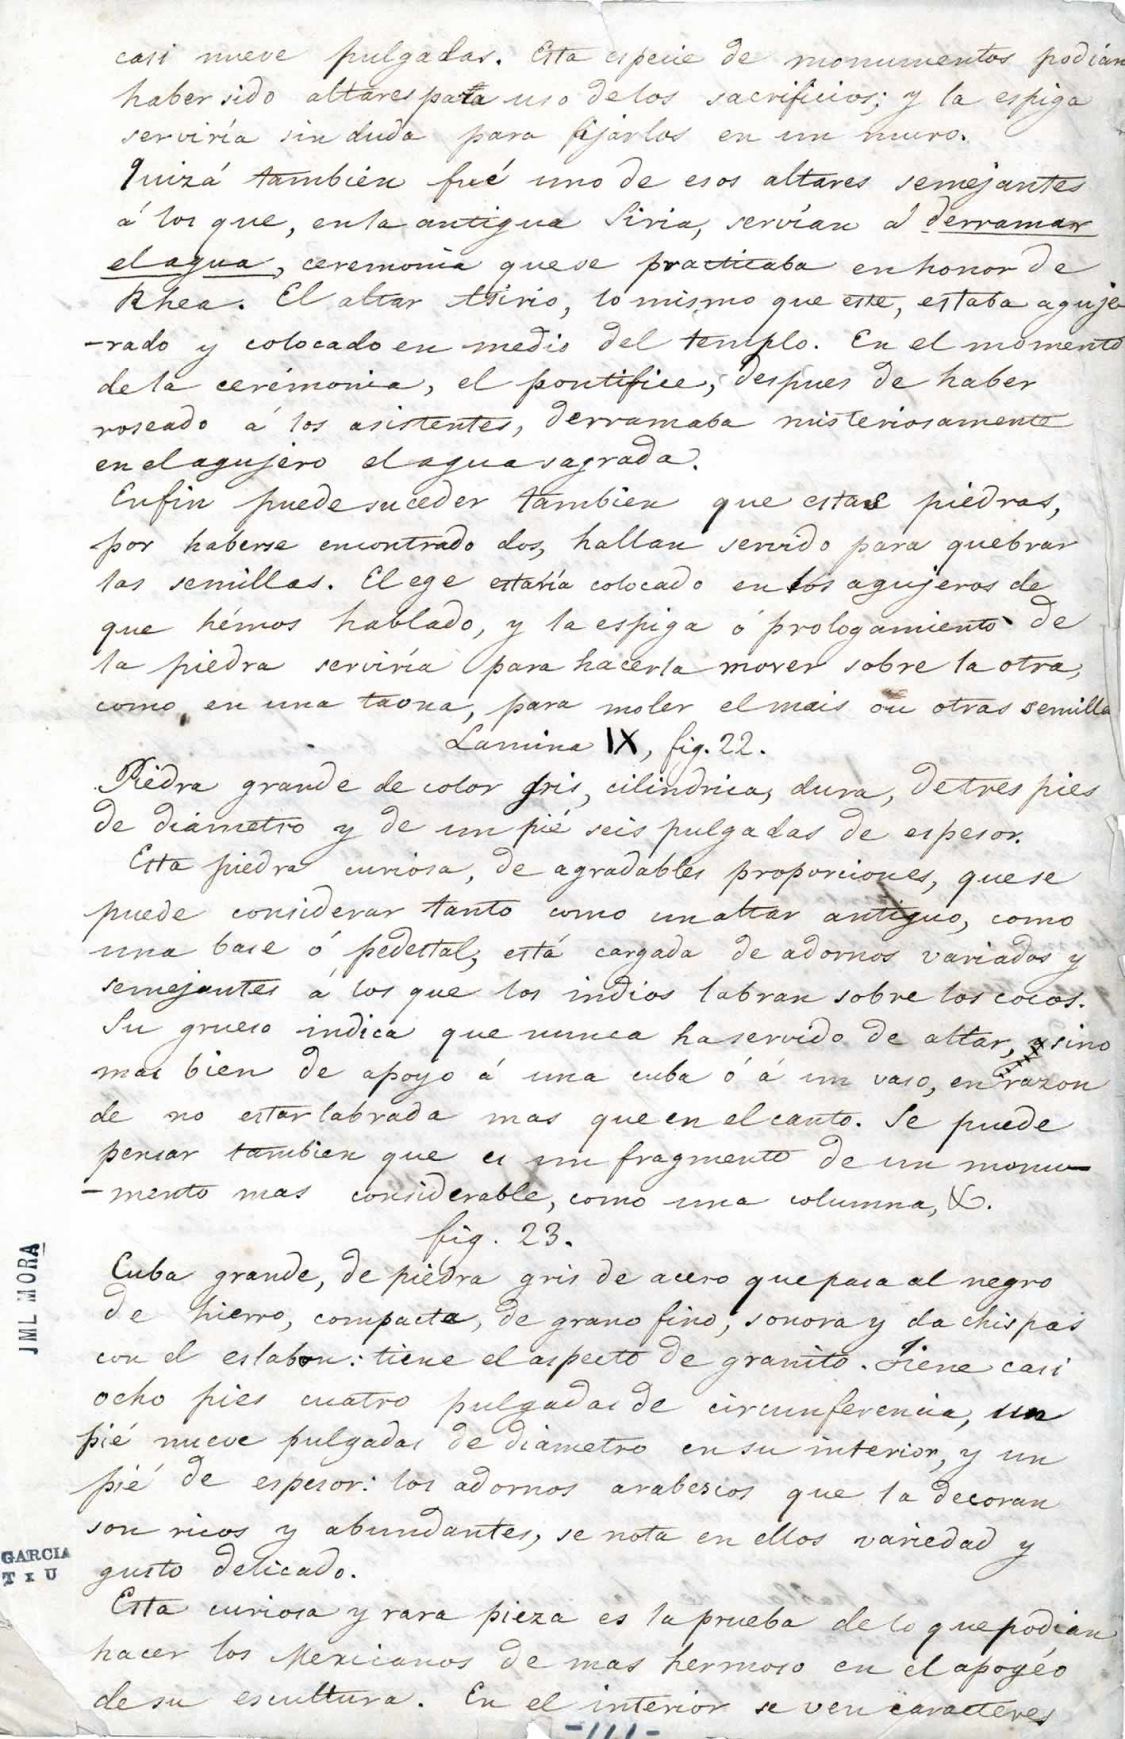 casi nueve pulgadas. Esta especie de monumentos podían
haber sido altares para uso de los sacrificios; y la espiga
serviría sin duda para fijárlos en un muro.
Quizá también fué uno de esos altares semejantes
á los que, en la antigua Siria, servían á derramar
el agua, ceremonia que se practicaba en honor de
Rhea. El altar Asirio, lo mismo que este, estaba aguje
-rado y colocado en medio del templo. En el momento
de la cerémonia, el pontifice, despues de haber
roseado á los asistentes, derramaba misteriosamente
en el agujero el agua sagrada.
Enfin puede suceder tambien que estas piedras,
por haberse encontrado dos, hallan servido para quebrar
las semillas. El ege estaría colocado en los agujeros de
que hémos hablado, y la espiga ó prologamiento de
la piedra serviría para hacerla mover sobre la otra,
como en una taona, para moler el mais ou otras semilla
Lamina IX, fig. 22.
Piedra grande de color gris, cilindrica, dura, de tres pies
de diámetro y de un pié seis pulgadas de espesor.
Esta piedra curiosa, de agradables proporciones, que se
puede considerar tanto como un altar antiguo, como
una base ó pedestal, está cargada de adornos variados y
semejantes á los que los indios labran sobre los cocos.
Su grueso indica que nunca ha servido de altar, sino
mas bien de apoyo á una cuba ó á un vaso, en razon
de no estar labrada mas que en el canto. Se puede
pensar tambien que es un fragmento de un monu-
-mento mas considerable, como una columna, &.
fig. 23.
Cuba grande, de piedra gris de acero que pasa al negro
de hierro, compacta, de grano fino, sonora y da chispas
con el eslabon: tiene el aspecto de granito. Tiene casi
ocho pies cuatro pulgadas de circunferencia, un
pié nueve pulgadas de diámetro en su interior, y un
pié de espesor: los adornos arabescos que la decoran
son ricos y abundantes, se nota en ellos variedad y
gusto delicado.
Esta curiosa y rara pieza es la prueba de lo que podian
hacer los Mexicanos de mas hermoso en el apogéo
de su escultura. En el interior se ven caracteres
-111-
JML MORA
GARCIA